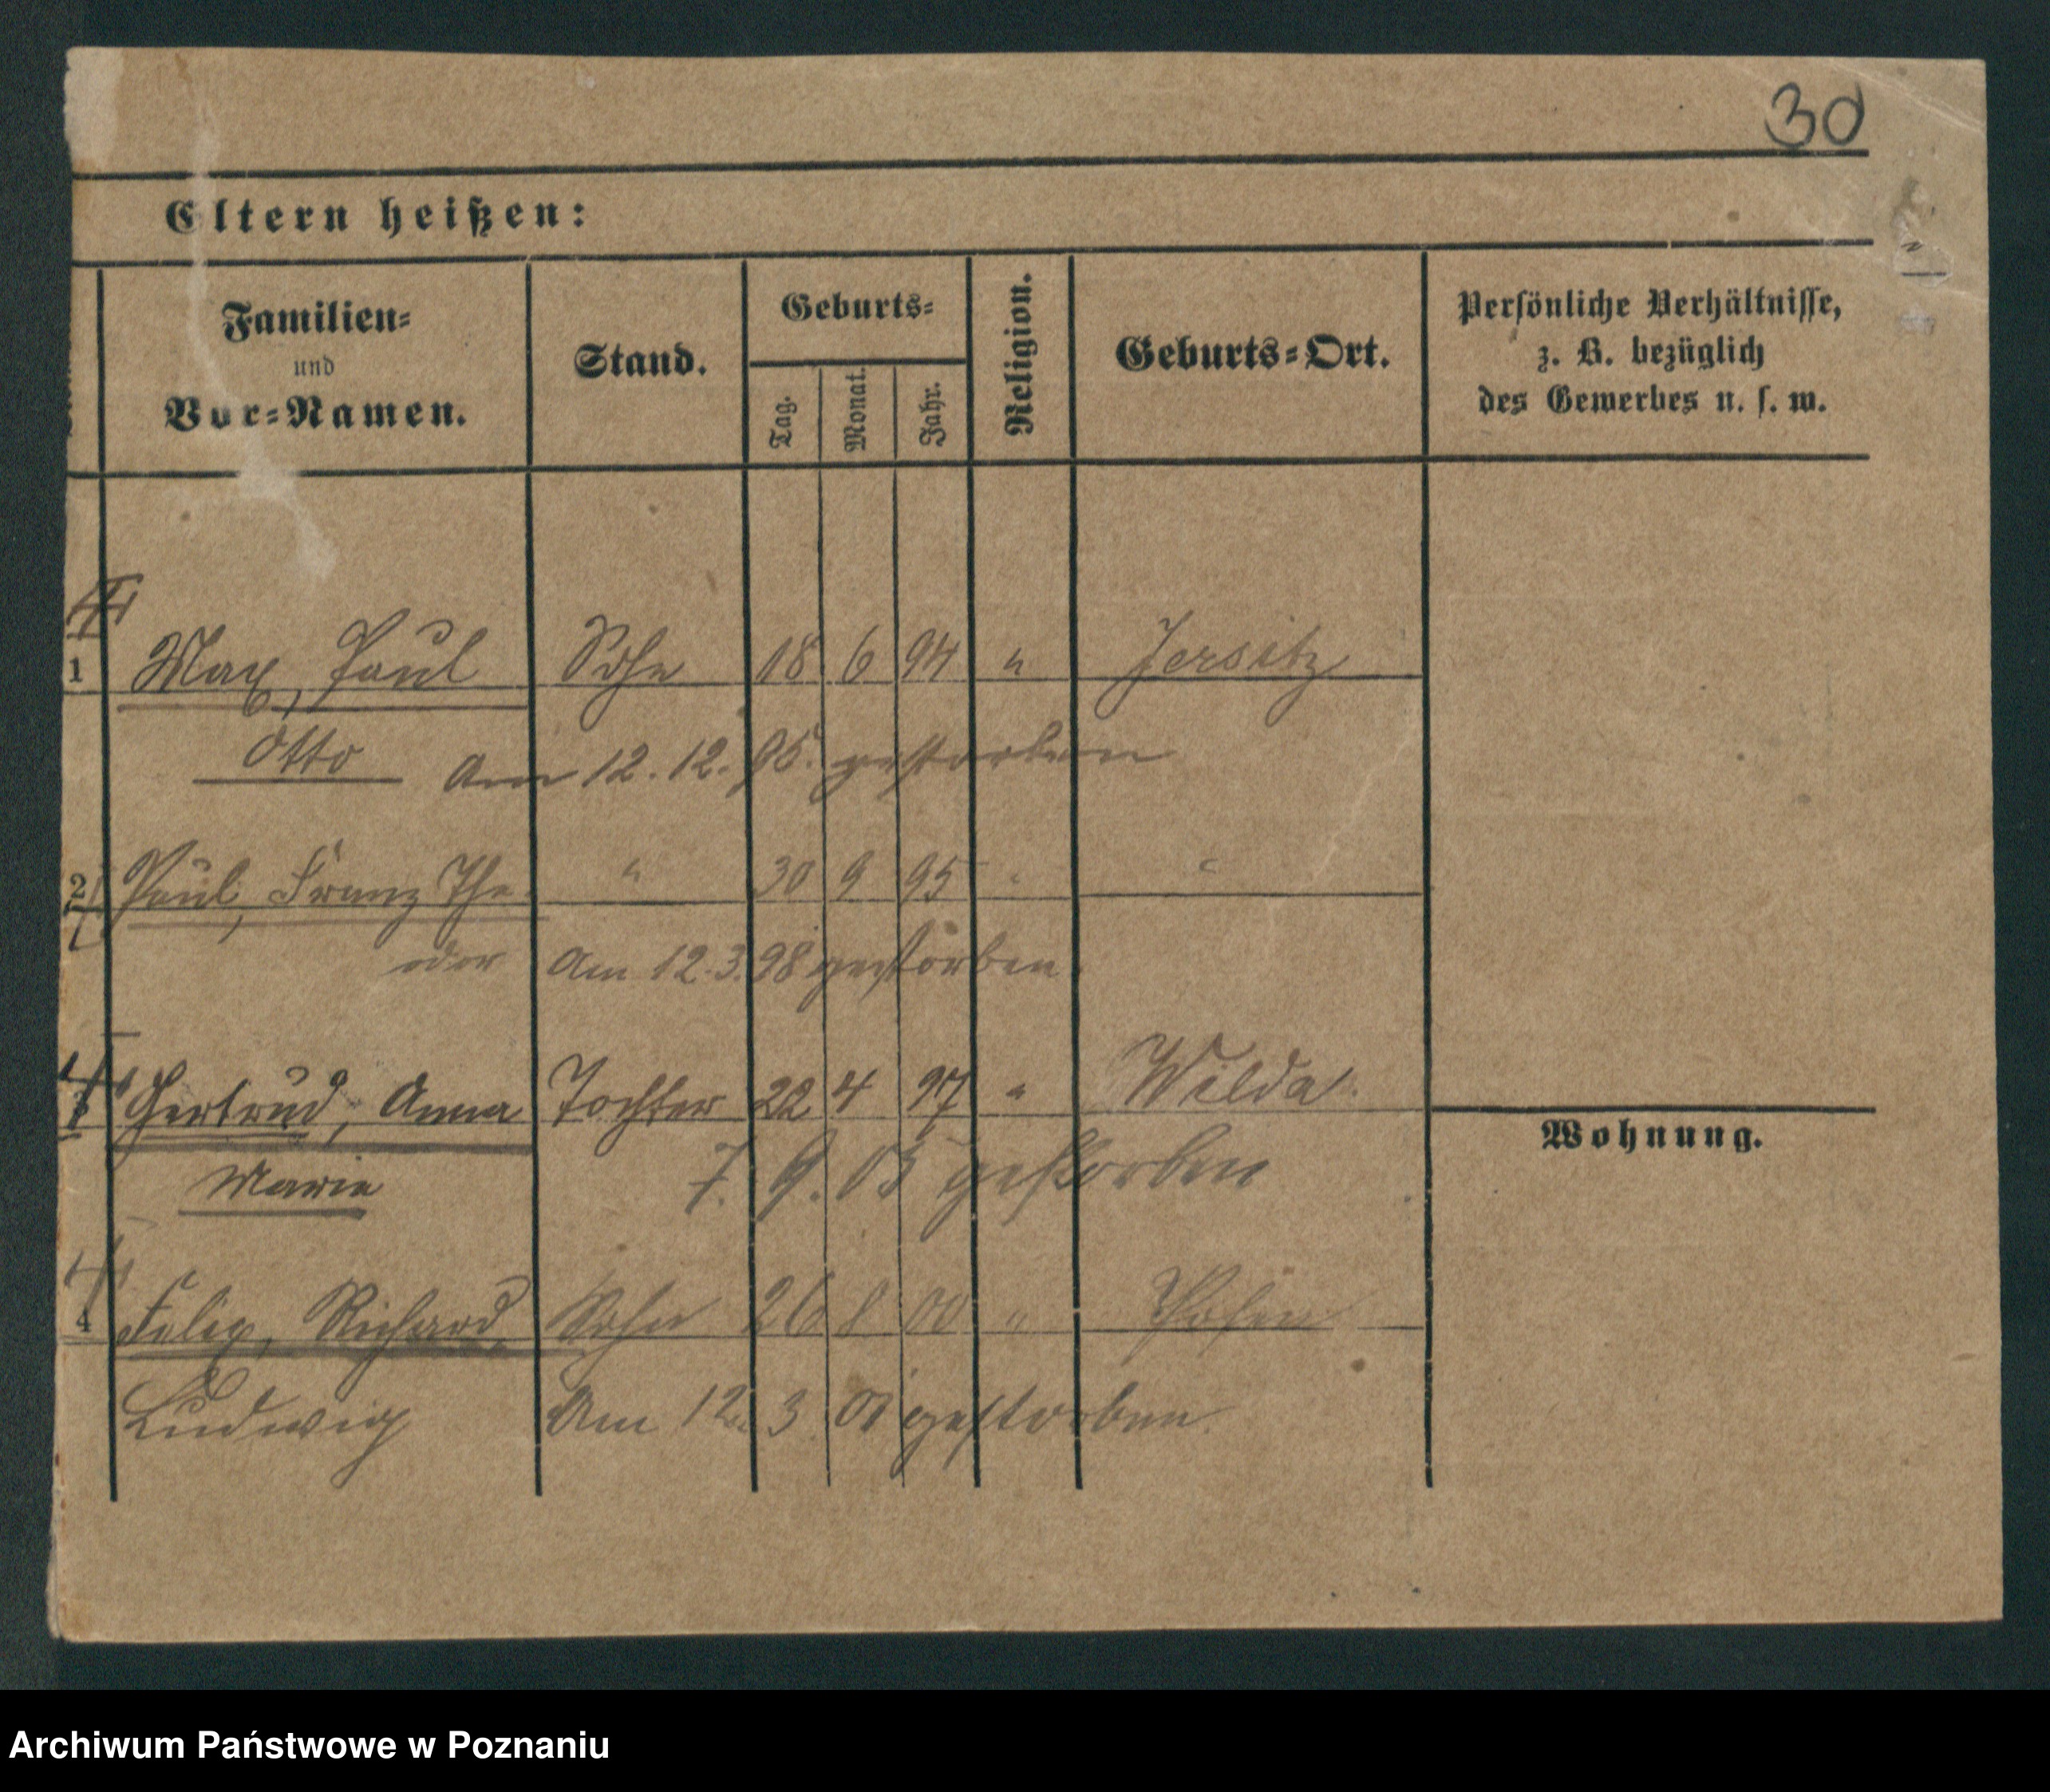 30
Eltern heißen:
Familien=
und
Vor=Namen.
Stand.
Geburts=
Tag.
Monat.
Jahr.
Religion.
Geburts=Ort.
Persönliche Verhältnisse,
z. B. bezüglich
des Gewerbes u. s. w.
1 Max, Paul Sohn 18 6 94 " Jersitz
Otto Am 12. 12. 95. gestorben
2 Paul, Franz The- " 30 9 95 " "
odor Am 12. 3. 98 gestorben
3 Gertrud, Anna Tochter 22 4 97 " Wilda
Wohnung.
Marie 7. 9. 05 gestorben
4 Felix, Richard, Sohn 26 8 00 " Posen
Ludwig Am 12. 3 01 gestorben.
Archiwum Państwowe w Poznaniu